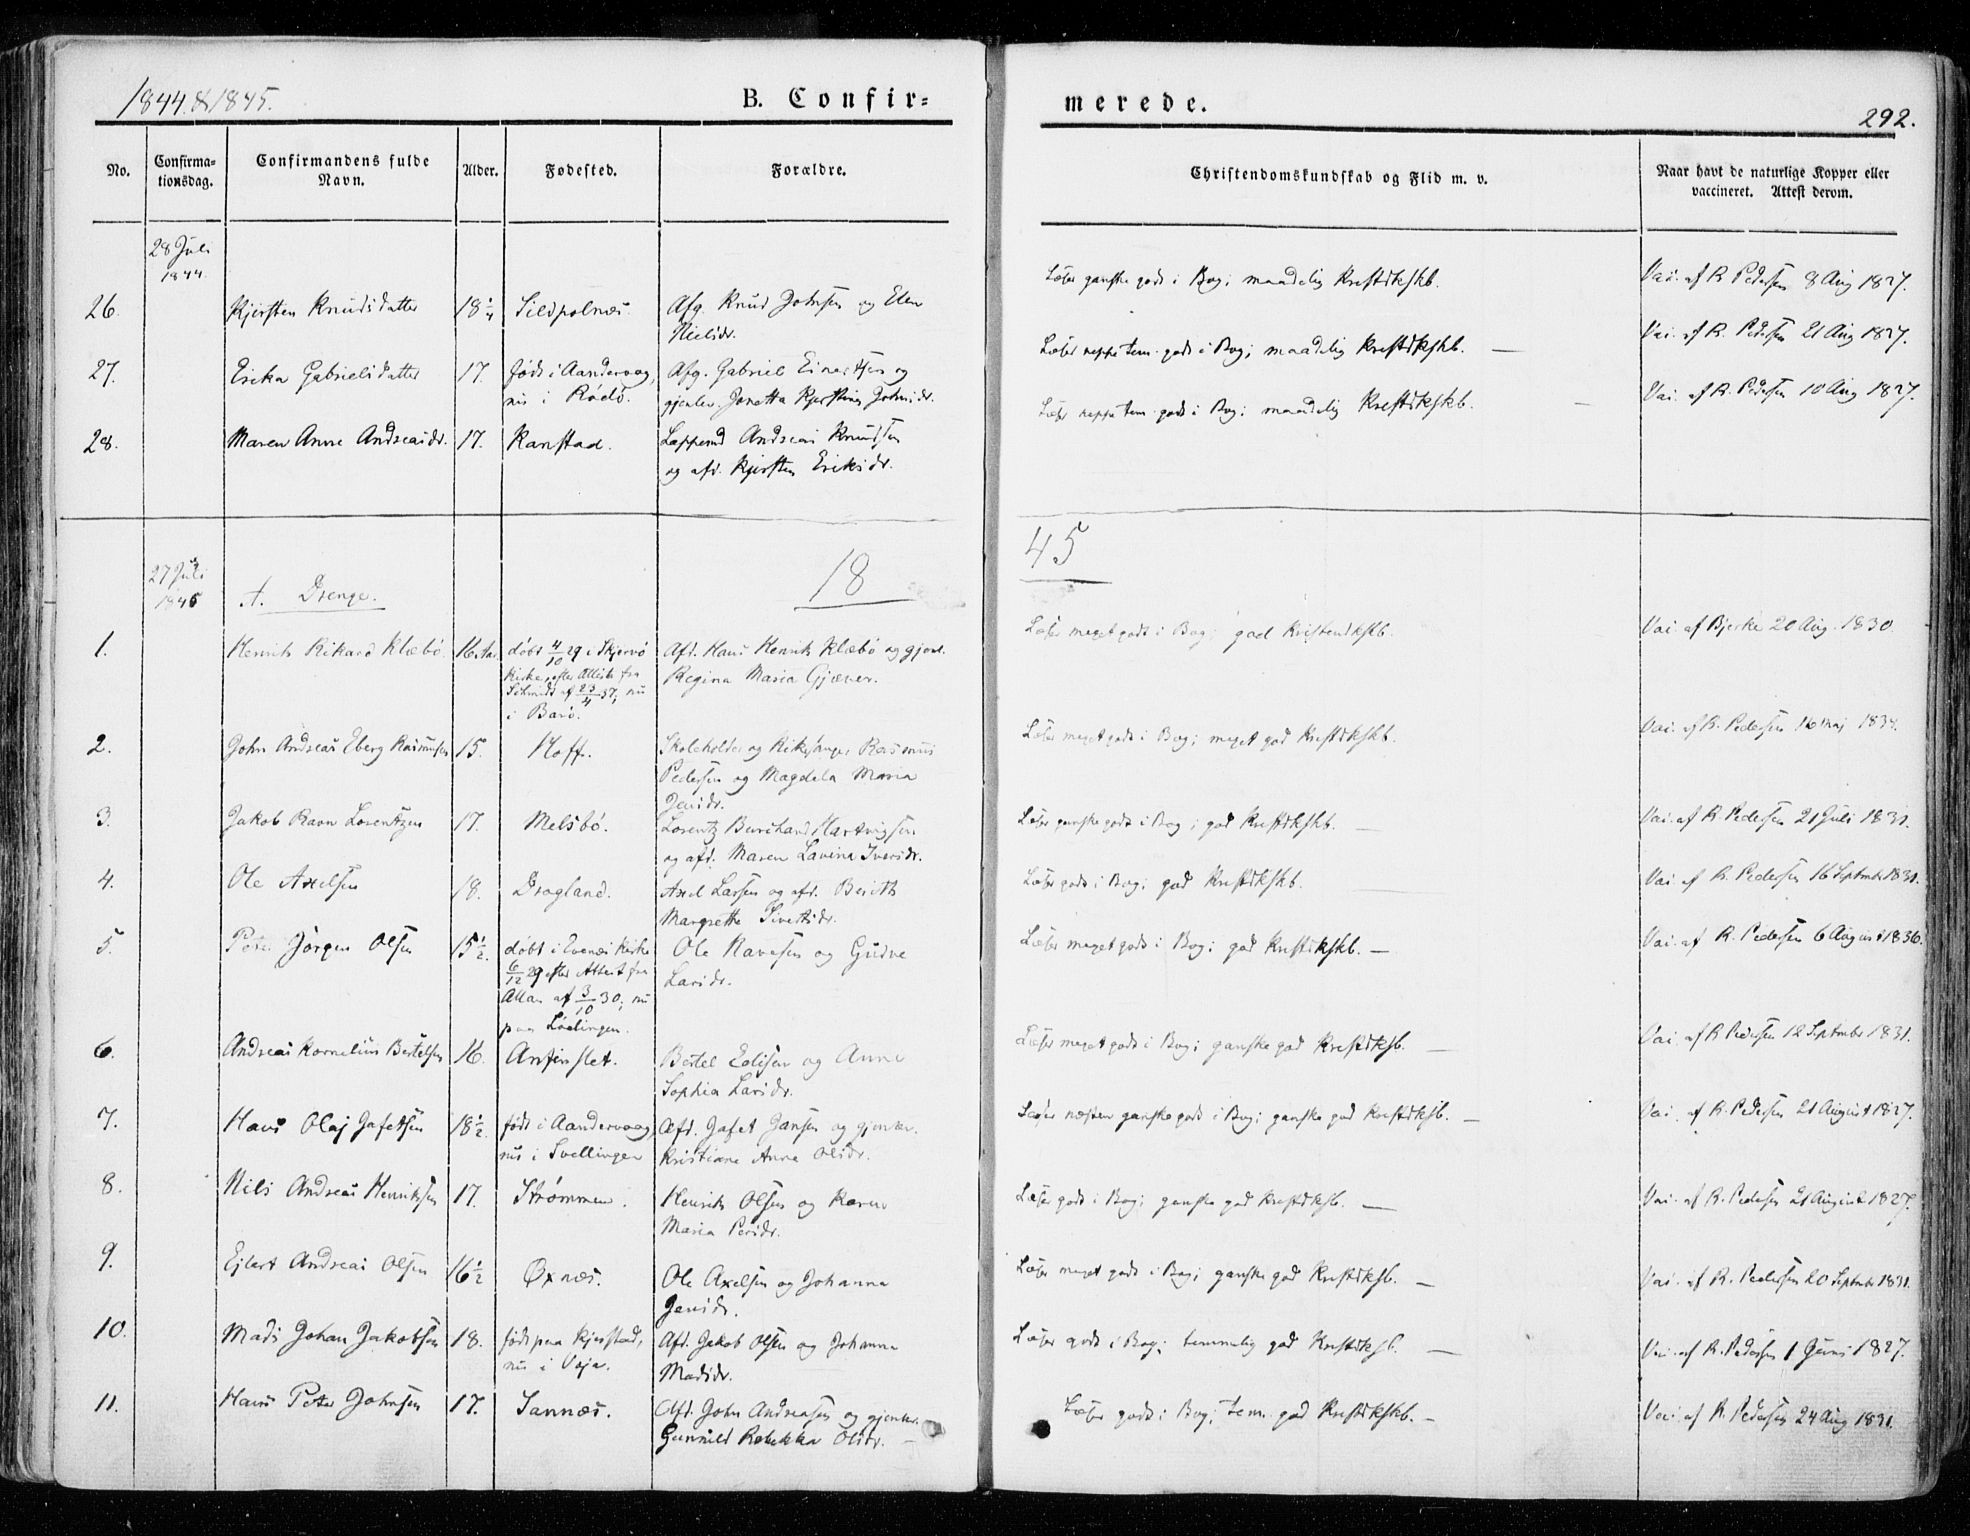 1844 & 1845.
B. Confir=
merede.
292.
No.
Confirma-
tionsdag.
Confirmandens fulde
Navn.
Alder.
Fødested.
Forældre.
Christendomskundskab og Flid m. v.
Naar havt de naturlige Kopper eller
vaccineret. Attest derom.
28 Juli
1844.
26.
Kjersten Knudsdatter
18 1/4
Sildpolnæs.
Afg. Knud Johnsen og Elen
Nielsdr.
Læser ganske godt i Bog; maadelig Kristdkskb.
Vai. af R. Pedersen 8 Aug 1827.
27.
Erika Gabrielsdatter
17.
født i Aandervaag,
nu i Rødø.
Afg. Gabriel Einertsen og
gjenlev. Janetta Kjerstina Johnsdr.
Læser neppe tem. godt i Bog; maadelig Kristdkskb. —
Vai. af R. Pedersen 21 Aug 1827.
28.
Maren Anne Andreasdr.
17.
Kanstad.
Lappemd Andreas Knudsen
og afd. Kjersten Eriksdr.
Læser neppe tem. godt i Bog; maadelig Kristdkskb. —
Vai. af R. Pedersen 10 Aug 1827.
27 Juli
1845
A. Drenge.
18
45
1.
Henrik Rikard Klæbø.
16 Aar
døbt 4/10 29 i Skjervø
Kirke, efter Attest fra
Schmidt af 23/4 37; nu
i Barø.
Afd. Hans Henrik Klæbø og gjenl.
Regina Maria Gjæver.
Læser meget godt i Bog; god Kristendkskb.
Vai. af Bjerke 20 Aug. 1830.
2.
John Andreas Eberg Rasmusen
15.
Hoff.
Skoleholder og Kirkesanger Rasmus
Pedersen og Magdela Maria
Jensdr.
Læser meget godt i Bog; meget god Kristdkskb.
Vai. af R. Pedersen 16 Maj 1834.
3.
Jakob Ravn Lorentzen
17.
Melsbø.
Lorentz Burchard Hartvigsen
og afd. Maren Lavina Iversdr.
Læser ganske godt i Bog; god Kristdkskb. —
Vai. af R. Pedersen 21 Juli 1831.
4.
Ole Axelsen
18.
Dragland.
Axel Larsen og afd. Berith
Margrethe Sivertsdr.
Læser godt i Bog; god Kristdkskb.
Vai. af R. Pedersen 16 Septmbr 1831.
5.
Peter Jørgen Olsen
15 1/2.
døbt i Evenæs Kirke
6/12 29 efter Attest fra
Allan af 3/10 30; nu
paa Lødingen.
Ole Navesen og Gudve
Larsdr.
Læser meget godt i Bog; god Kristdkskb. —
Vai. af R. Pedersen 6 August 1836.
6.
Andreas Kornelius Bertelsen
16.
Anfinslet.
Bertel Edisen og Anne
Sophia Larsdr.
Læser meget godt i Bog; ganske god Kristdksb. —
Vai. af R Pedersen 12 Septmber 1831.
7.
Hans Olaj Jafetsen
18 1/2.
født i Aandervaag,
nu i Svellingen
Afd. Jafet Jansen og gjenlev.
Kristiane Anna Olsdr.
Læser næsten ganske godt i Bog; ganske god Kristdksb. —
Vai. af R. Pedersen 21 August 1827.
8.
Nils Andreas Henriksen
17.
Strømmen.
Henrik Olsen og Karen
Maria Persdr.
Læser godt i Bog; ganske god Kristdksb. —
Vai. af R. Pedersen 21 August 1827.
9.
Ejlert Andreas Olsen
16 1/2
Øxnæs.
Ole Axelsen og Johanna
Jensdr.
Læser meget godt i Bog; ganske god Kristdksb. —
Vai. af R. Pedersen 20 Septmbr 1831.
10.
Mads Johan Jakobsen
18.
født paa Kjerstad,
nu i Voje.
Afd. Jakob Olsen og Johanna
Madsdr.
Læser godt i Bog; temmelig god Kristdksb. —
Vai. af R. Pedersen 1 Juni 1827.
11.
Hans Peter Johnsen
17.
Sannæs.
Afd. John Andreasen og gjenlev.
Gunnild Rebekka Olsdr. —
Læser godt i Bog; tem. god Kristdkskb. —
Vai. af R. Pedersen 24 Aug 1831.